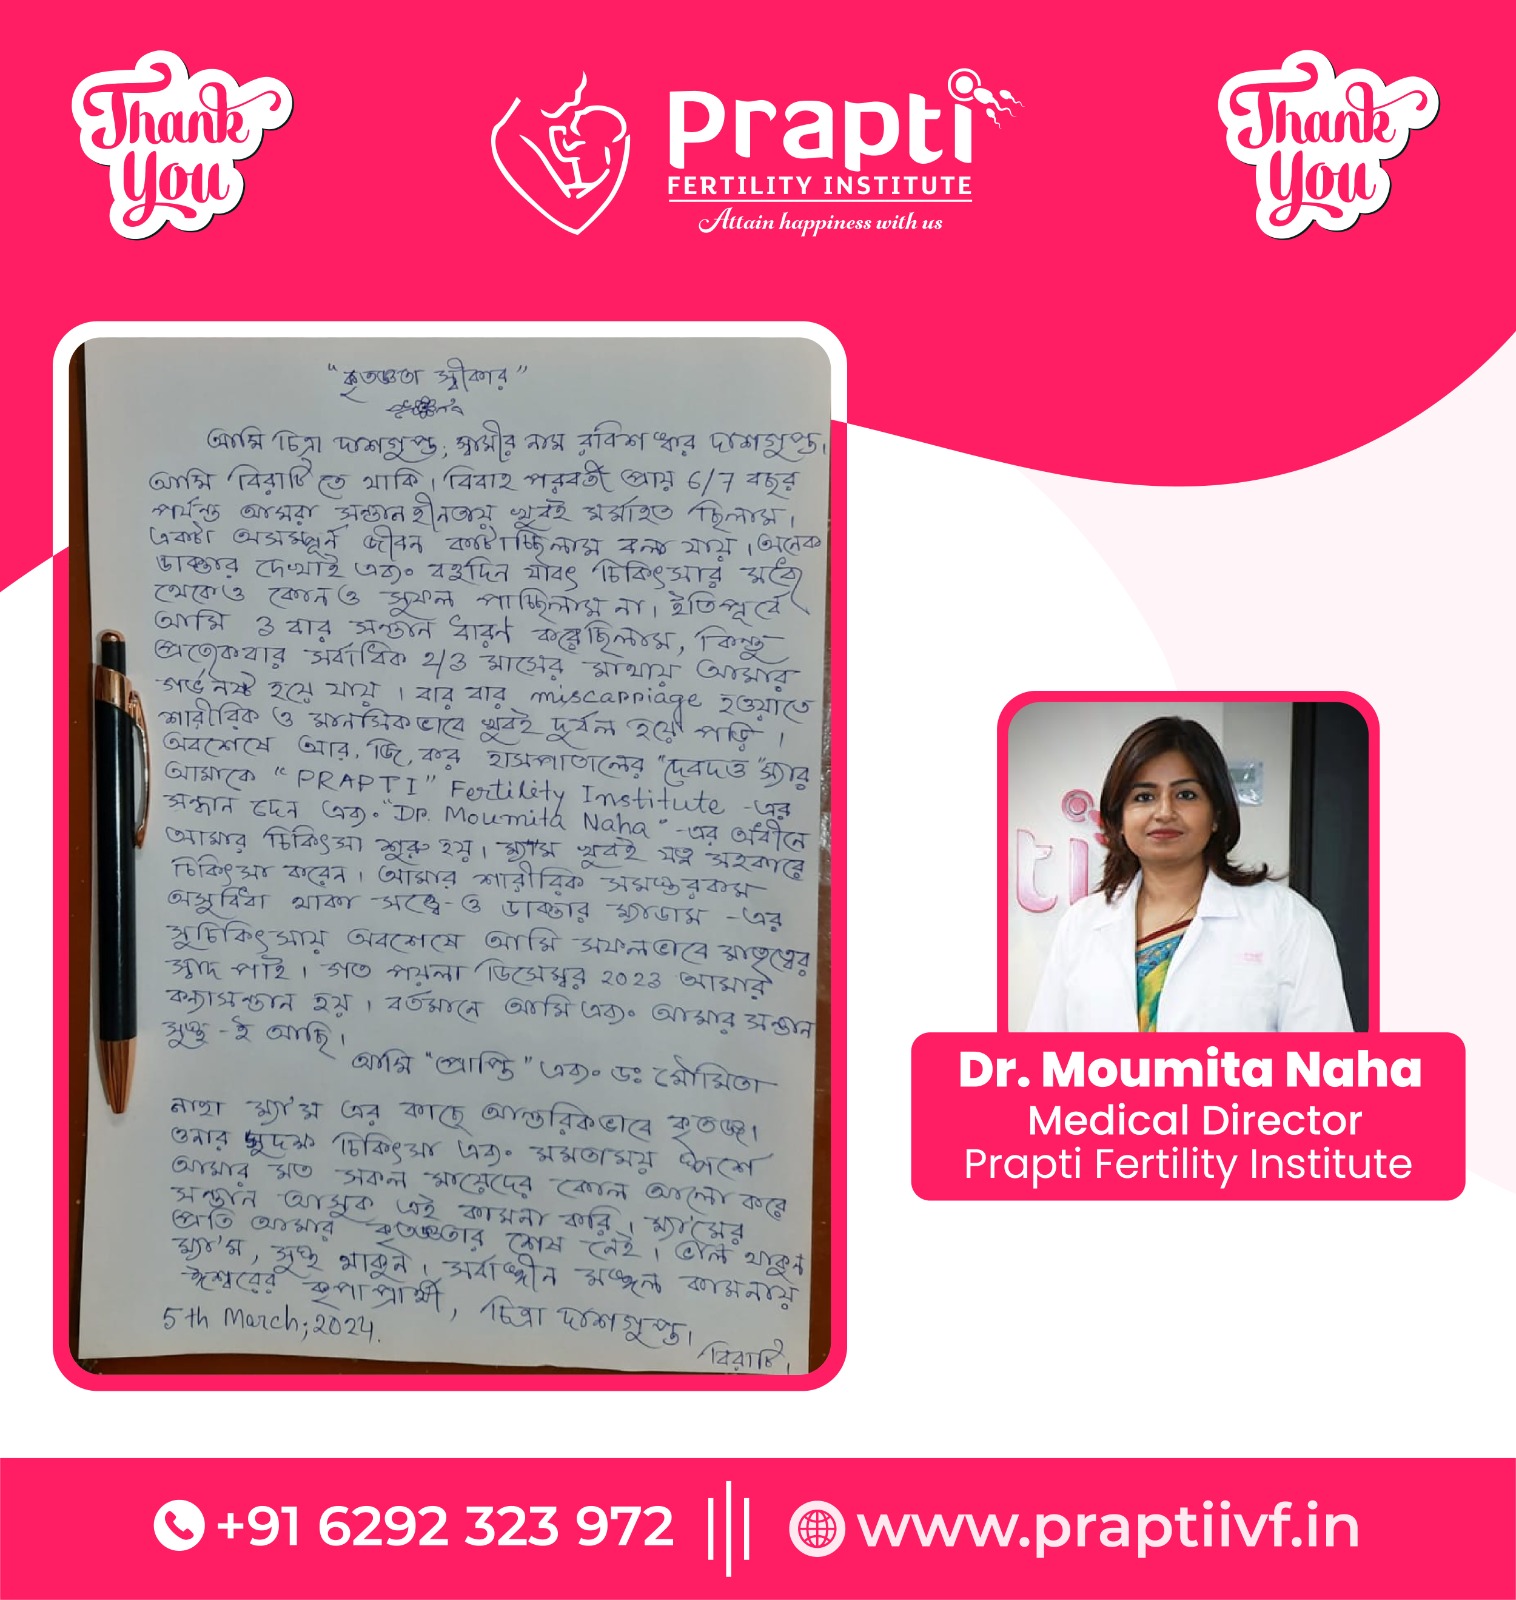 Thank
You
Prapti
FERTILITY INSTITUTE
Attain happiness with us
Thank
You
"কৃতজ্ঞতা স্বীকার"
আমি চিত্রা দাশগুপ্ত, স্বামীর নাম রবিশ ধর দাশগুপ্ত।
আমি বিরাটি তে থাকি। বিবাহ পরবর্তী প্রায় 6/7 বছর
পর্যন্ত আমরা সন্তানহীনতায় খুবই মর্মাহত ছিলাম।
একটা অসম্পূর্ন জীবন কাটাচ্ছিলাম বলা যায়। অনেক
ডাক্তার দেখাই এবং বহুদিন যাবৎ চিকিৎসার মধ্যে
থেকেও কোনও সুফল পাচ্ছিলাম না। ইতিপূর্বে
আমি 3 বার সন্তান ধারণ করেছিলাম, কিন্তু
প্রত্যেকবার সর্বাধিক 2/3 মাসের মাথায় আমার
গর্ভ নষ্ট হয়ে যায়। বার বার miscarriage হওয়াতে
শারীরিক ও মানসিকভাবে খুবই দুর্বল হয়ে পড়ি।
অবশেষে আর. জি. কর হাসপাতালের "দেবদত্ত" স্যার
আমাকে "PRAPTI" Fertility Institute -এর
সন্ধান দেন এবং "Dr. Moumita Naha" -এর অধীনে
আমার চিকিৎসা শুরু হয়। ম্যা'ম খুবই যত্ন সহকারে
চিকিৎসা করেন। আমার শারীরিক সমস্তরকম
অসুবিধা থাকা সত্ত্বে-ও ডাক্তার ম্যাডাম -এর
সুচিকিৎসায় অবশেষে আমি সফলভাবে মাতৃত্বের
স্বাদ পাই। গত পয়লা ডিসেম্বর 2023 আমার
কন্যাসন্তান হয়। বর্তমানে আমি এবং আমার সন্তান
সুস্থ -ই আছি।
আমি "প্রাপ্তি" এবং ডঃ মৌমিতা
নাহা ম্যা'ম এর কাছে আন্তরিকভাবে কৃতজ্ঞ।
ওনার সুদক্ষ চিকিৎসা এবং মমতাময় স্পর্শে
আমার মত সকল মায়েদের কোল আলো করে
সন্তান আসুক এই কামনা করি। ম্যা'মের
প্রতি আমার কৃতজ্ঞতার শেষ নেই। ভাল থাকুন
ম্যা'ম, সুস্থ থাকুন। সর্বাঙ্গীন মঙ্গল কামনায়
ঈশ্বরের কৃপাপ্রার্থী, চিত্রা দাশগুপ্ত।
5th March, 2024. বিরাটি।
ti
Dr. Moumita Naha
Medical Director
Prapti Fertility Institute
+91 6292 323 972
www.praptiivf.in